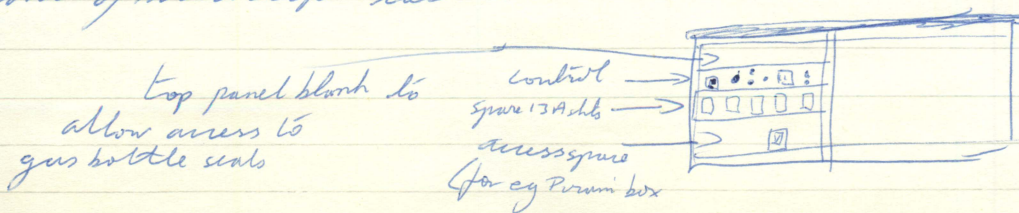 top panel blank to
allow access to
gas bottle seals
control
spare 13A skts
access space
(for eg Pirani box